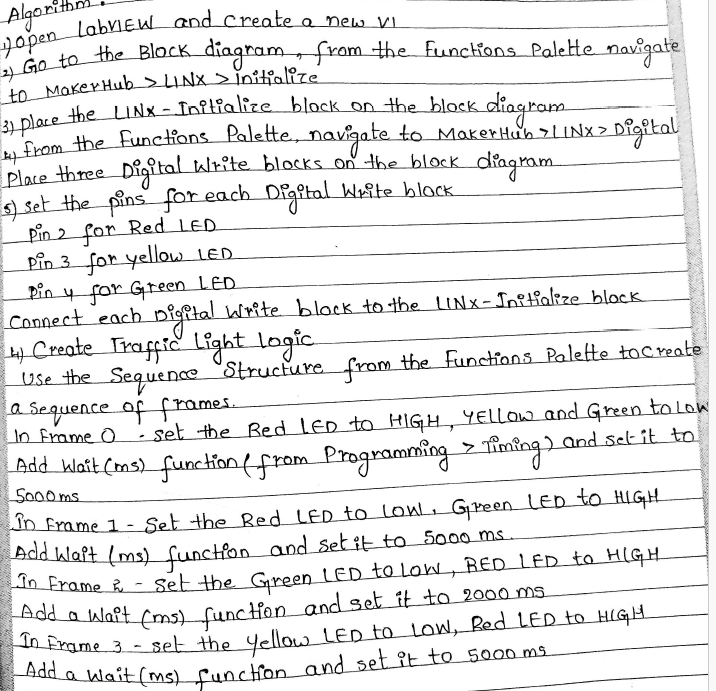 Algorithm :
1) open LabVIEW and create a new VI
2) Go to the Block diagram, from the Functions Palette navigate
to MakerHub > LINX > initialize
3) place the LINX - Initialize block on the block diagram
4) from the Functions Palette, navigate to MakerHub > LINX > Digital
Place three Digital Write blocks on the block diagram
5) set the pins for each Digital Write block
Pin 2 for Red LED
Pin 3 for yellow LED
Pin 4 for Green LED
Connect each Digital Write block to the LINX - Initialize block
4) Create Traffic Light logic
Use the Sequence Structure from the Functions Palette to create
a sequence of frames.
In Frame 0 - set the Red LED to HIGH, YEllow and Green to Low
Add Wait (ms) function (from Programming > Timing) and set it to
5000 ms
In Frame 1 - Set the Red LED to low, Green LED to HIGH
Add Wait (ms) function and set it to 5000 ms.
In Frame 2 - Set the Green LED to Low, RED LED to HIGH
Add a Wait (ms) function and set it to 2000 ms
In Frame 3 - set the Yellow LED to Low, Red LED to HIGH
Add a wait (ms) function and set it to 5000 ms